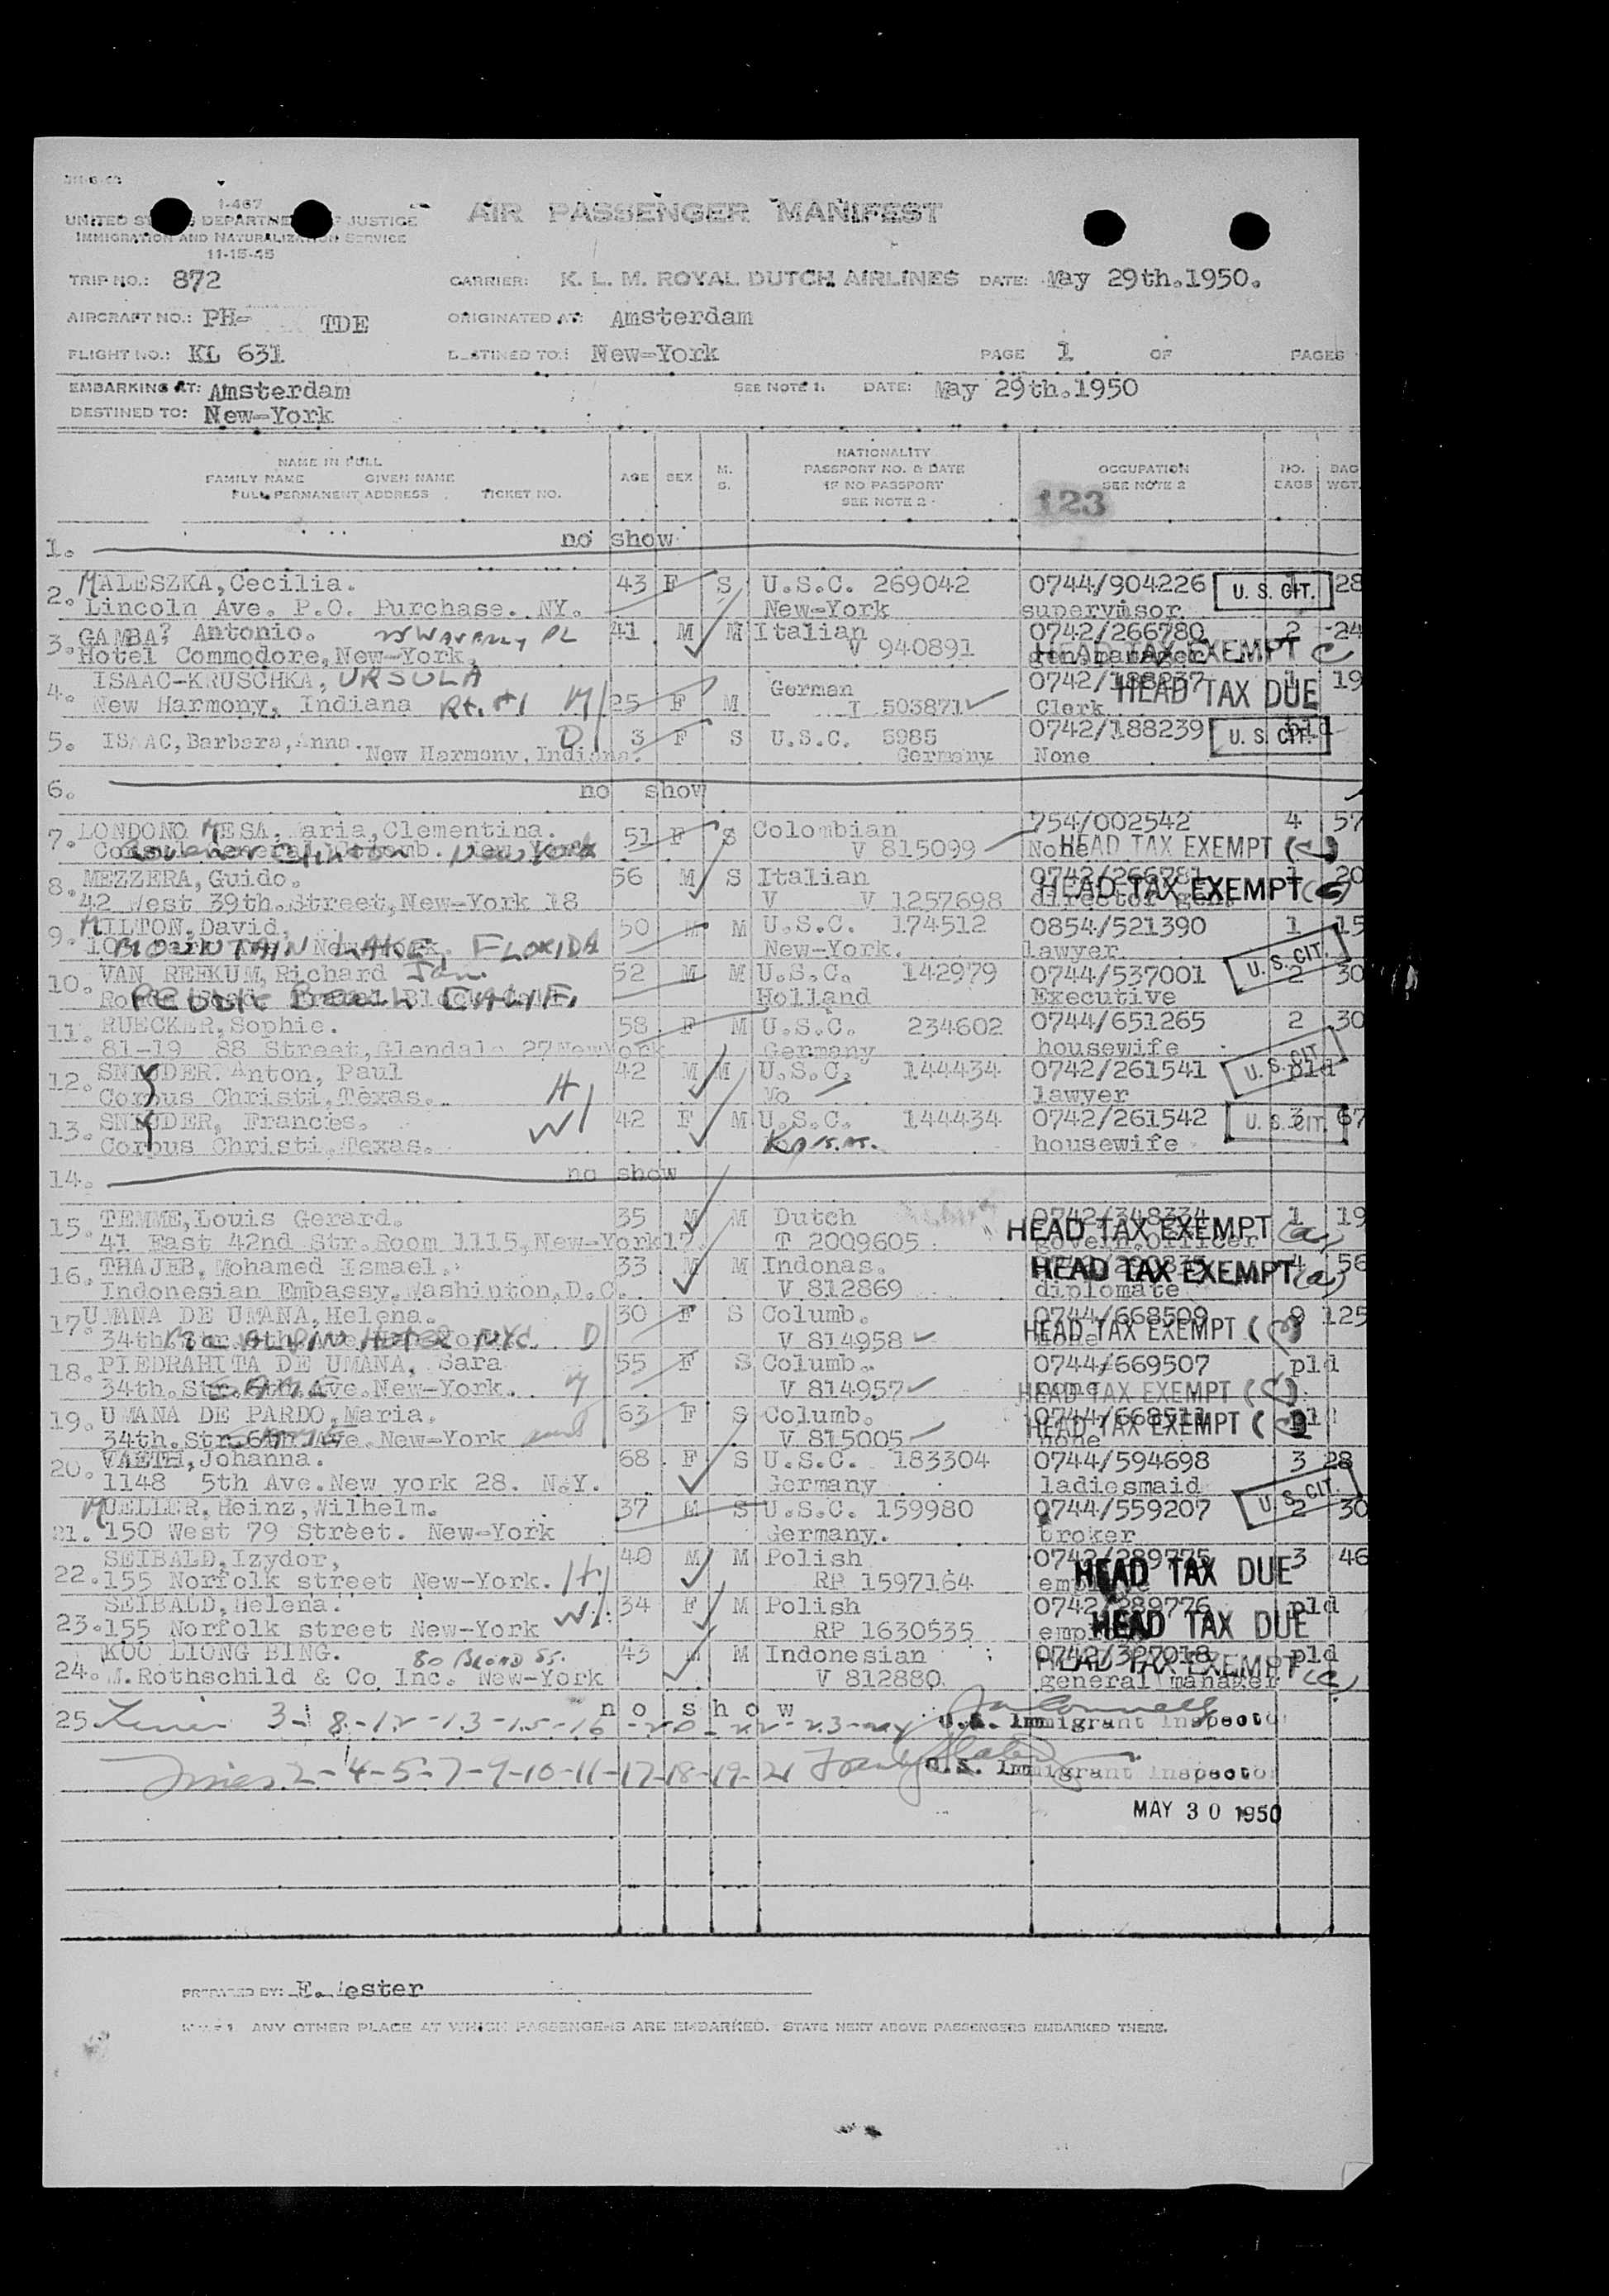 I-467
UNITED STATES DEPARTMENT OF JUSTICE
IMMIGRATION AND NATURALIZATION SERVICE
11-15-45
AIR PASSENGER MANIFEST
TRIP NO.: 872 CARRIER: K. L. M. ROYAL DUTCH AIRLINES DATE: May 29th.1950.
AIRCRAFT NO.: PH- TDE ORIGINATED AT: Amsterdam
FLIGHT NO.: KL 631 DESTINED TO: New-York PAGE 1 OF PAGES
EMBARKING AT: Amsterdam SEE NOTE 1. DATE: May 29th.1950
DESTINED TO: New-York
NAME IN FULL
FAMILY NAME GIVEN NAME
FULL PERMANENT ADDRESS TICKET NO.
AGE SEX M. S.
NATIONALITY
PASSPORT NO. & DATE
IF NO PASSPORT
SEE NOTE 2
OCCUPATION
SEE NOTE 2
NO. BAGS BAG WGT.
123
1. no show
2. MALESZKA, Cecilia. 43 F S U.S.C. 269042 0744/904226 U. S. CIT. 1 28
Lincoln Ave. P.O. Purchase. NY. New-York supervisor
3. GAMBA? Antonio. 41 M M Italian 0742/266780 2 24
Hotel Commodore, New-York. V 940891 HEAD TAX EXEMPT
4. ISAAC-KRUSCHKA, URSULA 25 F M German 0742/188237 1 19
New Harmony, Indiana Rt. #1 I 503871 Clerk HEAD TAX DUE
5. ISAAC, Barbara, Anna. D 3 F S U.S.C. 5985 0742/188239 U. S. CIT. pld
New Harmony, Indiana. Germany None
6. no show
7. LONDONO MESA, Maria, Clementina. 51 F S Colombian 754/002542 4 57
New York V 815099 None HEAD TAX EXEMPT (c)
8. MEZZERA, Guido. 56 M S Italian 0742/266781 1 20
42 West 39th.Street, New-York 18 V V 1257698 HEAD TAX EXEMPT (c)
9. MILTON, David, 50 M M U.S.C. 174512 0854/521390 1 15
MOUNTAIN LAKE, FLORIDA New-York. lawyer U. S. CIT.
10. VAN REEKUM, Richard Jan. 52 M M U.S.C. 142979 0744/537001 2 30
Beach CALIF. Holland Executive
11. RUECKER, Sophie. 58 F M U.S.C. 234602 0744/651265 2 30
81-19 88 Street, Glendale 27 New York Germany housewife U. S. CIT.
12. SNYDER. Anton, Paul H 42 M M U.S.C. 144434 0742/261541 pld
Corpus Christi, Texas. Mo lawyer
13. SNYDER, Frances. W 42 F M U.S.C. 144434 0742/261542 U. S. CIT. 3 67
Corpus Christi, Texas. housewife
14. no show
15. TEMME, Louis Gerard. 35 M M Dutch 0742/348334 1 19
41 East 42nd Str.Room 1115, New-York17 T 2009605 govern.officer HEAD TAX EXEMPT (a)
16. THAJEB, Mohamed Ismael. 33 M M Indones. 4 56
Indonesian Embassy, Washinton, D.C. V 812869 diplomate HEAD TAX EXEMPT (a)
17. UMANA DE UMANA, Helena. 30 F S Columb. 0744/668509 9 125
34th HOTEL NYC. D V 814958 none HEAD TAX EXEMPT
18. PIEDRAHITA DE UMANA, Sara 55 F S Columb. 0744/669507 pld
34th.Str. Ave.New-York. V 814957 none HEAD TAX EXEMPT (c)
19. UMANA DE PARDO, Maria. 63 F S Columb. 0744/668511
34th.Str.6th Ave.New-York V 815005 none HEAD TAX EXEMPT (c)
20. VAETH, Johanna. 68 F S U.S.C. 183304 0744/594698 3 28
1148 5th Ave.New york 28. N.Y. Germany ladiesmaid U. S. CIT.
21. MUELLER, Heinz, Wilhelm. 37 M S U.S.C. 159980 0744/559207 2 30
150 West 79 Street. New-York Germany. broker
22. SEIBALD, Izydor, 40 M M Polish 0742/289775 3 46
155 Norfolk street New-York. H RP 1597164 HEAD TAX DUE
23. SEIBALD, Helena. 34 F M Polish 0742/289776 pld
155 Norfolk street New-York W RP 1630535 HEAD TAX DUE
24. KOO LIONG BING. 80 BROAD ST. 43 M M Indonesian 0742/327018 pld
M.Rothschild & Co Inc. New-York V 812880 general manager HEAD TAX EXEMPT (c)
25 no show
3-8-12-13-15-16-20-22-23-24 U.S. Immigrant Inspector
2-4-5-7-9-10-11-17-18-19-21 U.S. Immigrant Inspector
MAY 30 1950
PREPARED BY: E.
NOTE 1. ANY OTHER PLACE AT WHICH PASSENGERS ARE EMBARKED. STATE NEXT ABOVE PASSENGERS EMBARKED THERE.